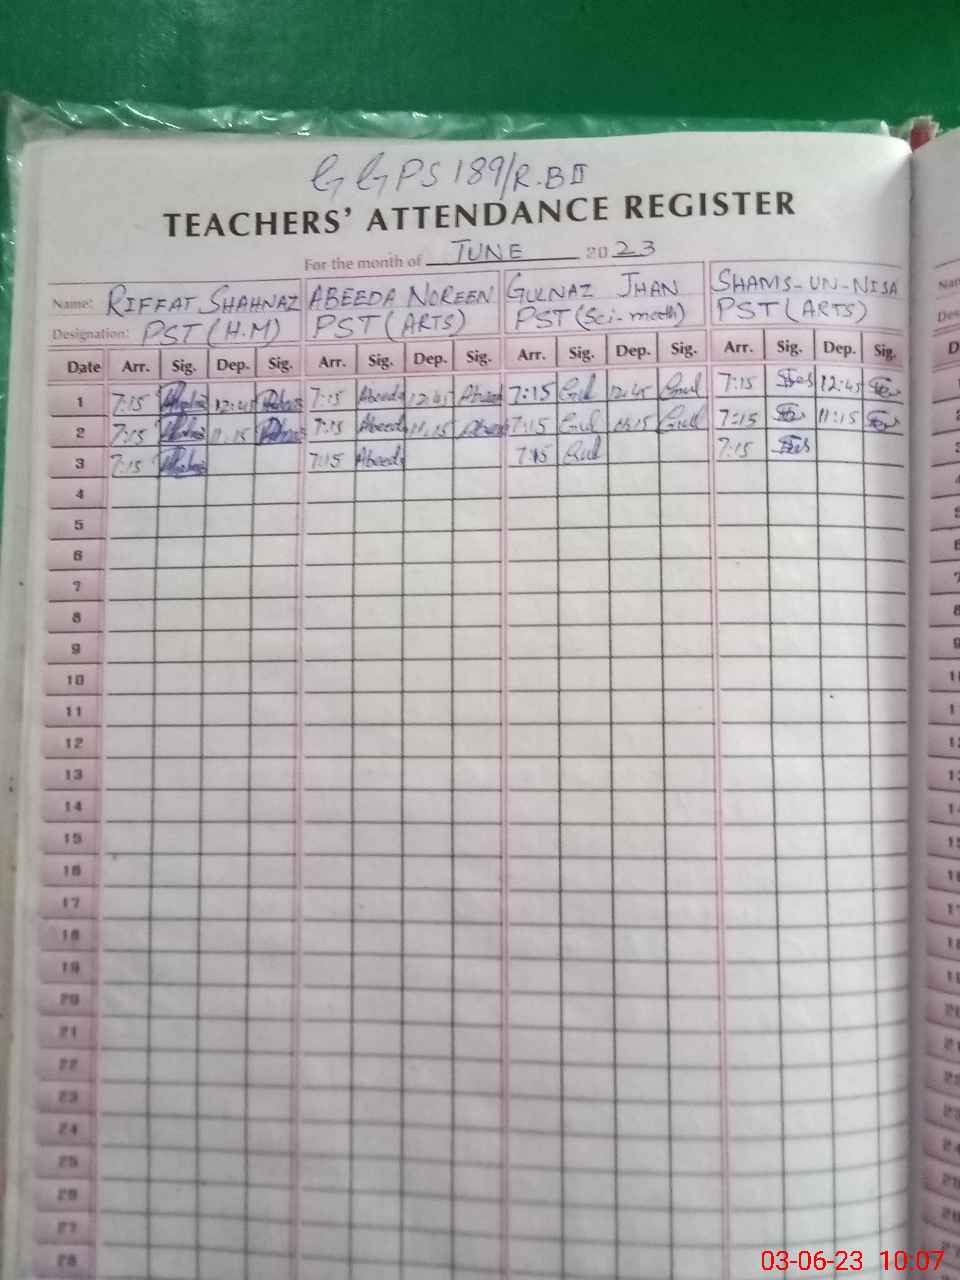 GGPS 189/R.B II
TEACHERS' ATTENDANCE REGISTER
For the month of JUNE 2023
Name: RIFFAT SHAHNAZ ABEEDA NOREEN GULNAZ JHAN SHAMS-UN-NISA
Designation: PST (H.M) PST (ARTS) PST (Sci-math) PST (ARTS)
Date Arr. Sig. Dep. Sig. Arr. Sig. Dep. Sig. Arr. Sig. Dep. Sig. Arr. Sig. Dep. Sig.
1 7:15 12:45 7:15 Abeeda 12:45 Abeeda 7:15 Gul 12:45 Gul 7:15 12:45
2 7:15 11:15 7:15 Abeeda 11:15 Abeeda 7:15 Gul 11:15 Gul 7:15 11:15
3 7:15 7:15 Abeeda 7:15 Gul 7:15
4
5
6
7
8
9
10
11
12
13
14
15
16
17
18
19
20
21
22
23
24
25
26
27
28
03-06-23 10:07